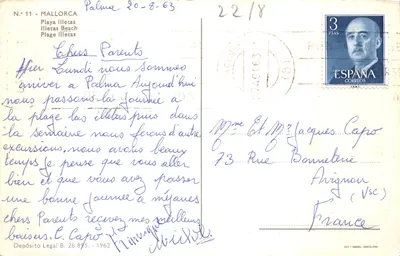 Palma 20-8-63
22/8
N.º 11 - MALLORCA
Playa Illetas
Illetas Beach
Plage Illetas
3
PTAS
ESPAÑA
CORREOS
Chers Parents
Hier Lundi nous sommes
arriver a Palma Aujourd'hui
nous passons la journée a
la plage las illetas puis dans
la semaine nous ferons d'autre
excursions, nous avons beau
temps Je pense que vous aller
bien et que vous avez passer
une bonne journée a
chers Parents recevez mes meilleurs
baisers. C. Capo
Mme Et Mr Jacques Capo
73 Rue Bonneterie
Avignon
(VSC)
France
Depósito Legal B. 26.895 - 1962